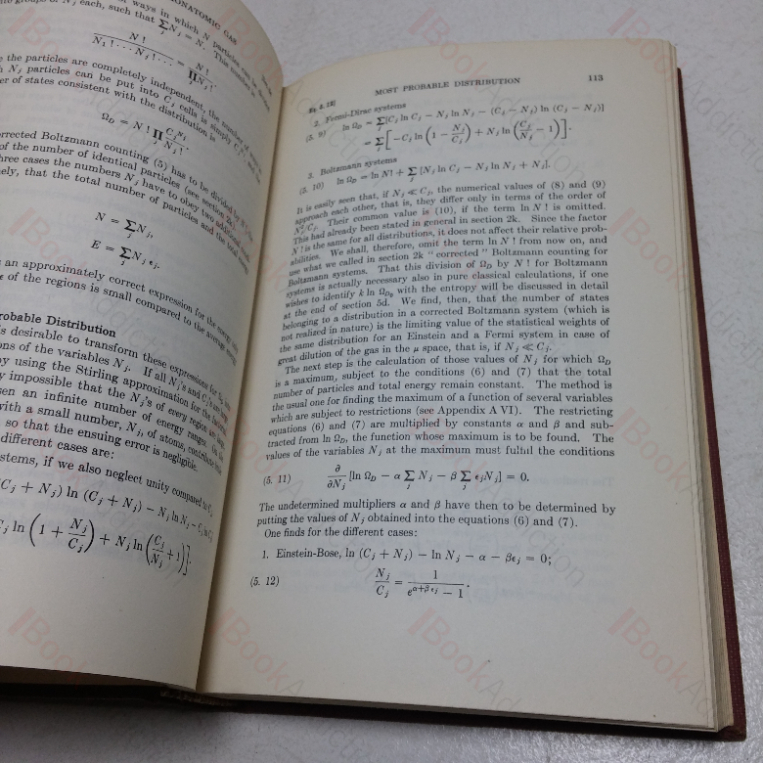 MONATOMIC GAS
each, such that ∑_j N_j = N. This number
ways in which N particles can
N! / (N_1! ··· N_j! ···) = N! / ∏_j N_j!
the particles are completely independent, the number of
N_j particles can be put into C_j cells is simply
of states consistent with the distribution is
Ω_D = N! ∏_j C_j^{N_j} / N_j!
corrected Boltzmann counting (5) has to be divided by
of the number of identical particles (see section
three cases the numbers N_j have to obey two additional
namely, that the total number of particles and the total
N = ∑_j N_j,
E = ∑_j N_j ε_j.
an approximately correct expression for the
of the regions is small compared to the average
Probable Distribution
is desirable to transform these expressions for
of the variables N_j. If all N_j's and C_j's are
by using the Stirling approximation for the
impossible that the N_j's of every region are
an infinite number of energy ranges.
with a small number, N_j, of atoms, contribute
so that the ensuing error is negligible.
different cases are:
systems, if we also neglect unity compared to C_j
(C_j + N_j) ln (C_j + N_j) − N_j ln N_j − C_j ln C_j
C_j ln (1 + N_j/C_j) + N_j ln (C_j/N_j + 1)].
MOST PROBABLE DISTRIBUTION 113
2. Fermi-Dirac systems
(5. 9) ln Ω_D = ∑_j [C_j ln C_j − N_j ln N_j − (C_j − N_j) ln (C_j − N_j)]
= ∑_j [−C_j ln (1 − N_j/C_j) + N_j ln (C_j/N_j − 1)].
3. Boltzmann systems
(5. 10) ln Ω_D = ln N! + ∑_j [N_j ln C_j − N_j ln N_j + N_j].
It is easily seen that, if N_j ≪ C_j, the numerical values of (8) and (9)
approach each other, that is, they differ only in terms of the order of
N_j²/C_j. Their common value is (10), if the term ln N! is omitted.
This had already been stated in general in section 2k. Since the factor
N! is the same for all distributions, it does not affect their relative prob-
abilities. We shall, therefore, omit the term ln N! from now on, and
use what we called in section 2k "corrected" Boltzmann counting for
Boltzmann systems. That this division of Ω_D by N! for Boltzmann
systems is actually necessary also in pure classical calculations, if one
wishes to identify k ln Ω_D₀ with the entropy will be discussed in detail
at the end of section 5d. We find, then, that the number of states
belonging to a distribution in a corrected Boltzmann system (which is
not realized in nature) is the limiting value of the statistical weights of
the same distribution for an Einstein and a Fermi system in case of
great dilution of the gas in the μ space, that is, if N_j ≪ C_j.
The next step is the calculation of those values of N_j for which Ω_D
is a maximum, subject to the conditions (6) and (7) that the total
number of particles and total energy remain constant. The method is
the usual one for finding the maximum of a function of several variables
which are subject to restrictions (see Appendix A VI). The restricting
equations (6) and (7) are multiplied by constants α and β and sub-
tracted from ln Ω_D, the function whose maximum is to be found. The
values of the variables N_j at the maximum must fulfil the conditions
(5. 11) ∂/∂N_j [ln Ω_D − α ∑_j N_j − β ∑_j ε_j N_j] = 0.
The undetermined multipliers α and β have then to be determined by
putting the values of N_j obtained into the equations (6) and (7).
One finds for the different cases:
1. Einstein-Bose, ln (C_j + N_j) − ln N_j − α − βε_j = 0;
(5. 12) N_j/C_j = 1/(e^{α+βε_j} − 1).